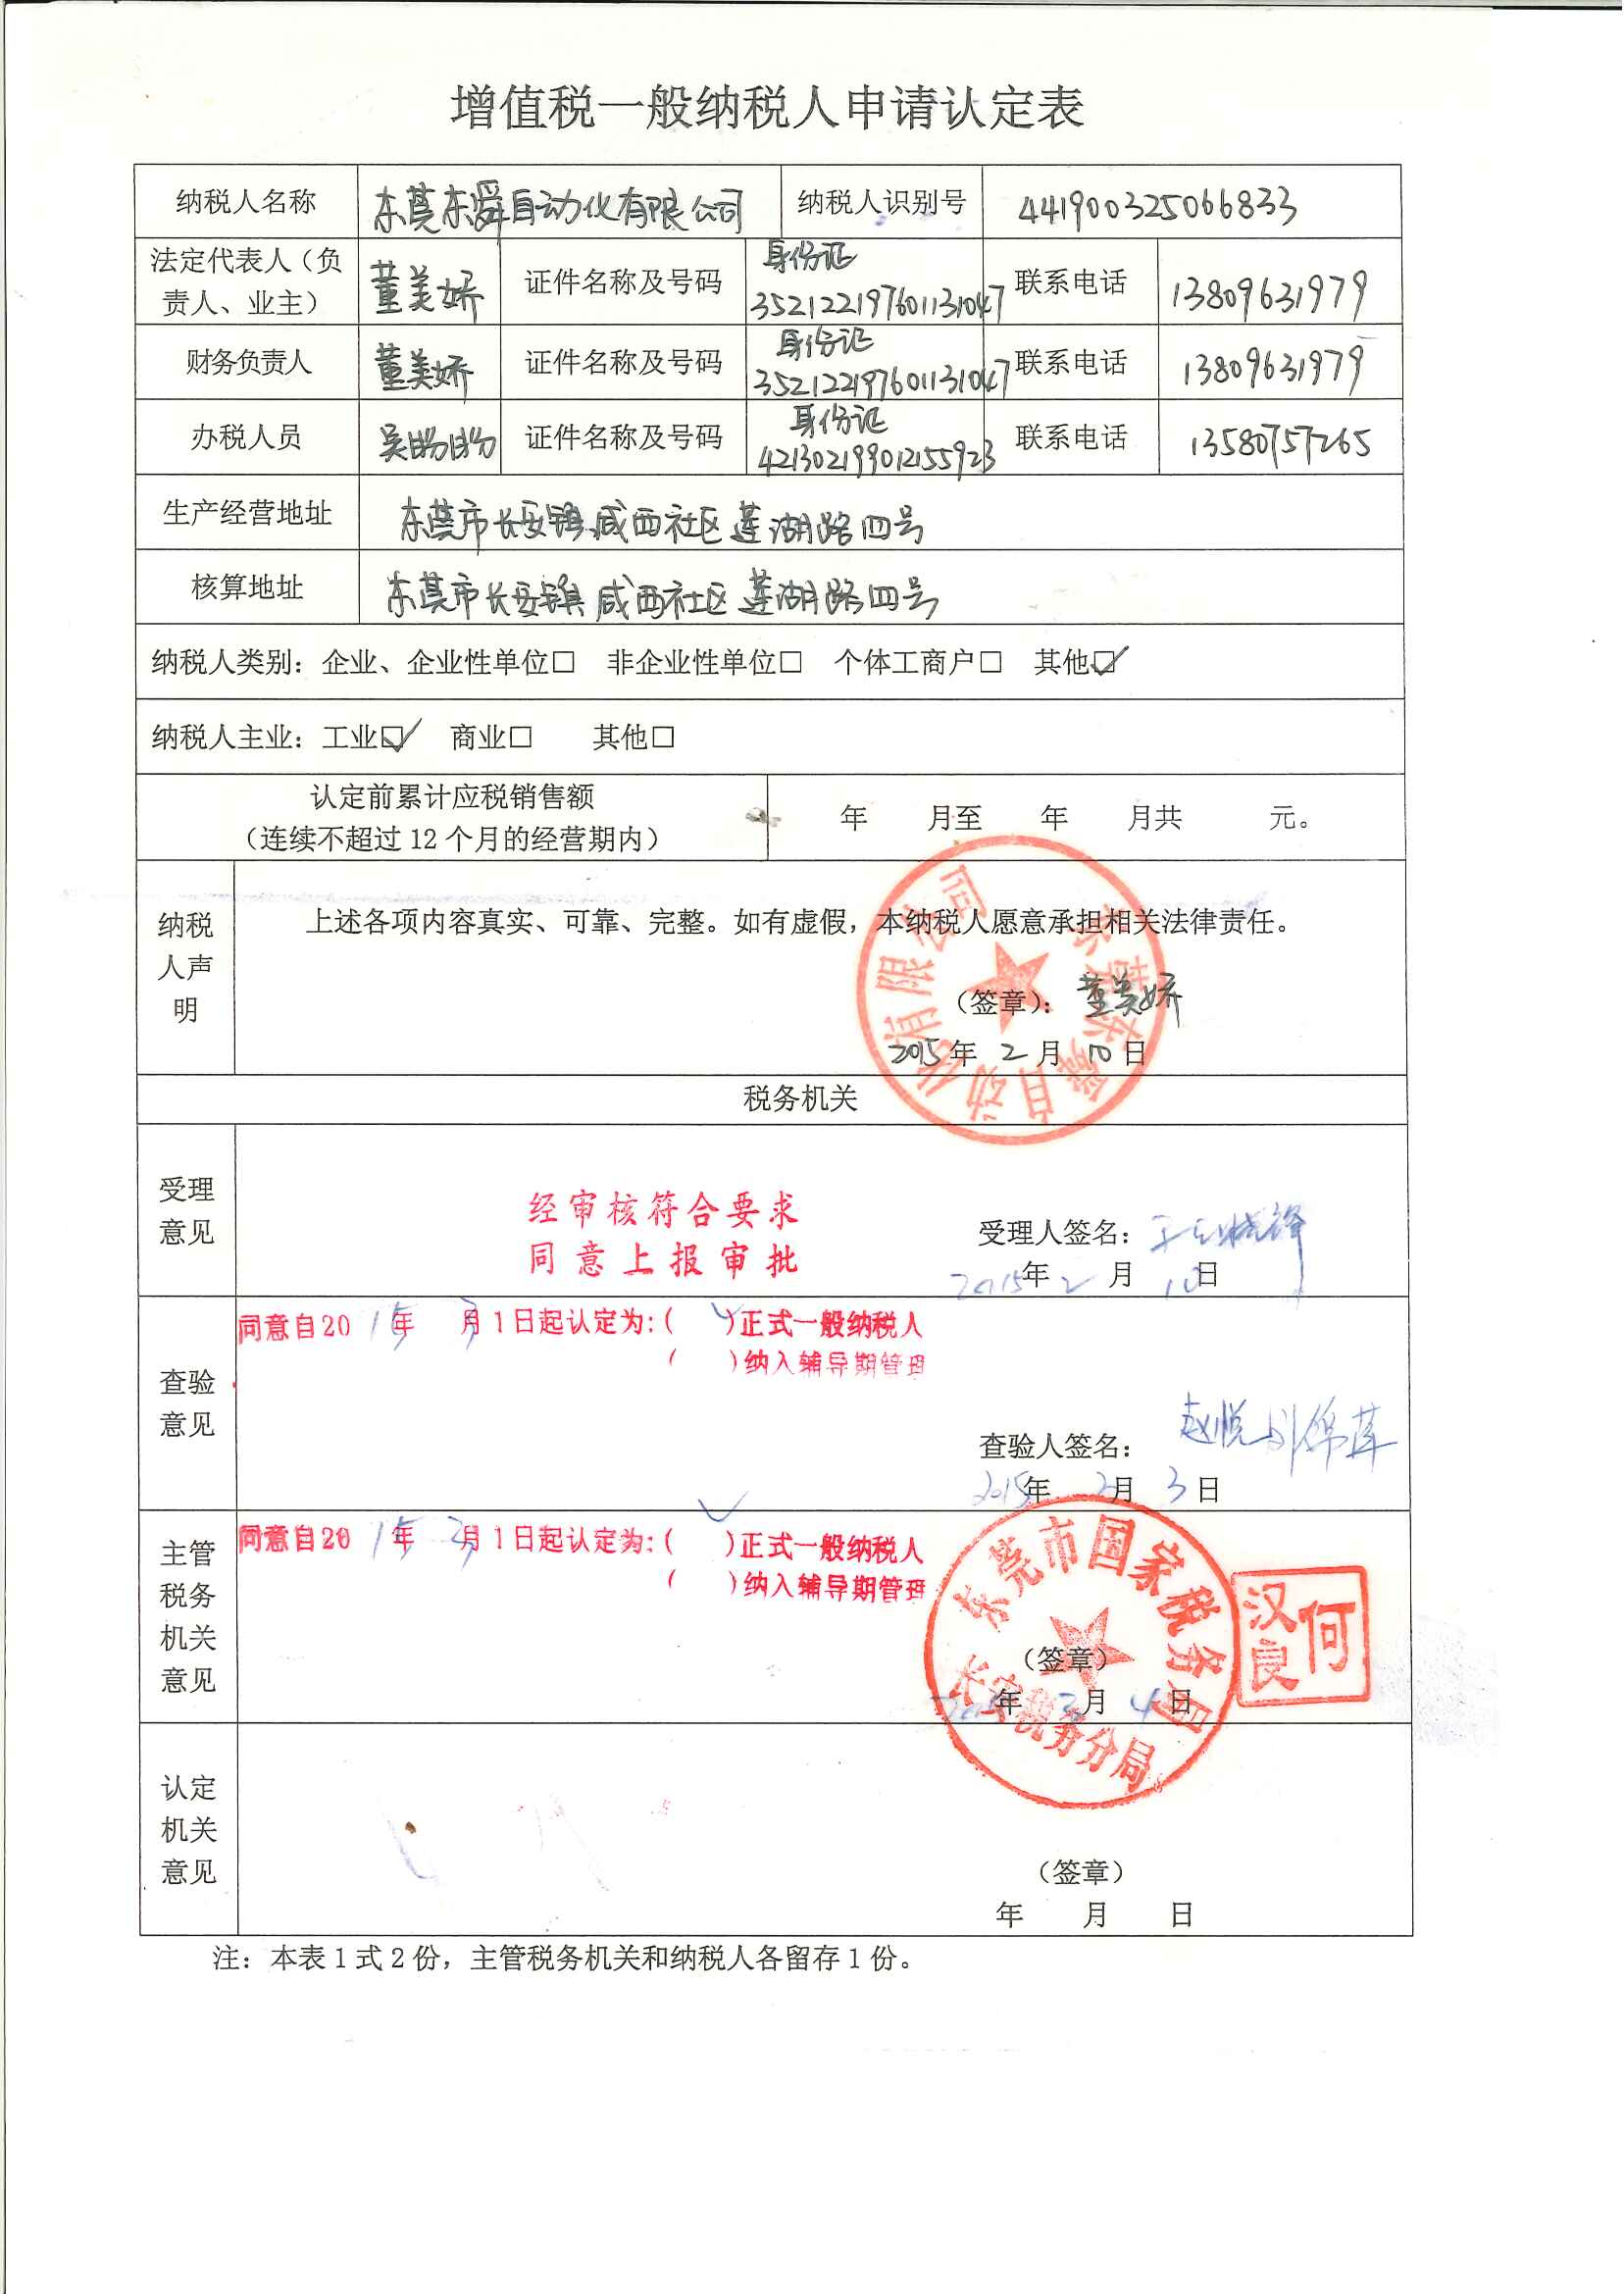 增值税一般纳税人申请认定表
纳税人名称 东莞东舜自动化有限公司 纳税人识别号 441900325066833
法定代表人（负责人、业主） 董美娇 证件名称及号码 身份证 352122197601131047 联系电话 13809631979
财务负责人 董美娇 证件名称及号码 身份证 352122197601131047 联系电话 13809631979
办税人员 吴 证件名称及号码 身份证 421302199012155923 联系电话 13580757265
生产经营地址 东莞市长安镇咸西社区莲湖路四号
核算地址 东莞市长安镇咸西社区莲湖路四号
纳税人类别：企业、企业性单位□ 非企业性单位□ 个体工商户□ 其他☑
纳税人主业：工业☑ 商业□ 其他□
认定前累计应税销售额
（连续不超过 12 个月的经营期内） 年 月至 年 月共 元。
纳税人声明
上述各项内容真实、可靠、完整。如有虚假，本纳税人愿意承担相关法律责任。
（签章）：董美娇
2015 年 2 月 10 日
东莞东舜自动化有限公司
税务机关
受理意见
经审核符合要求
同意上报审批
受理人签名：
2015 年 2 月 10 日
查验意见
同意自20 15 年 3 月 1 日起认定为：( ✓ )正式一般纳税人
( )纳入辅导期管理
查验人签名：赵悦 刘锦萍
2015 年 月 3 日
主管税务机关意见
同意自20 15 年 月 1 日起认定为：( ✓ )正式一般纳税人
( )纳入辅导期管理
（签章）
年 3 月 4 日
东莞市国家税务局
长安税务分局
何汉良
认定机关意见
（签章）
年 月 日
注：本表 1 式 2 份，主管税务机关和纳税人各留存 1 份。